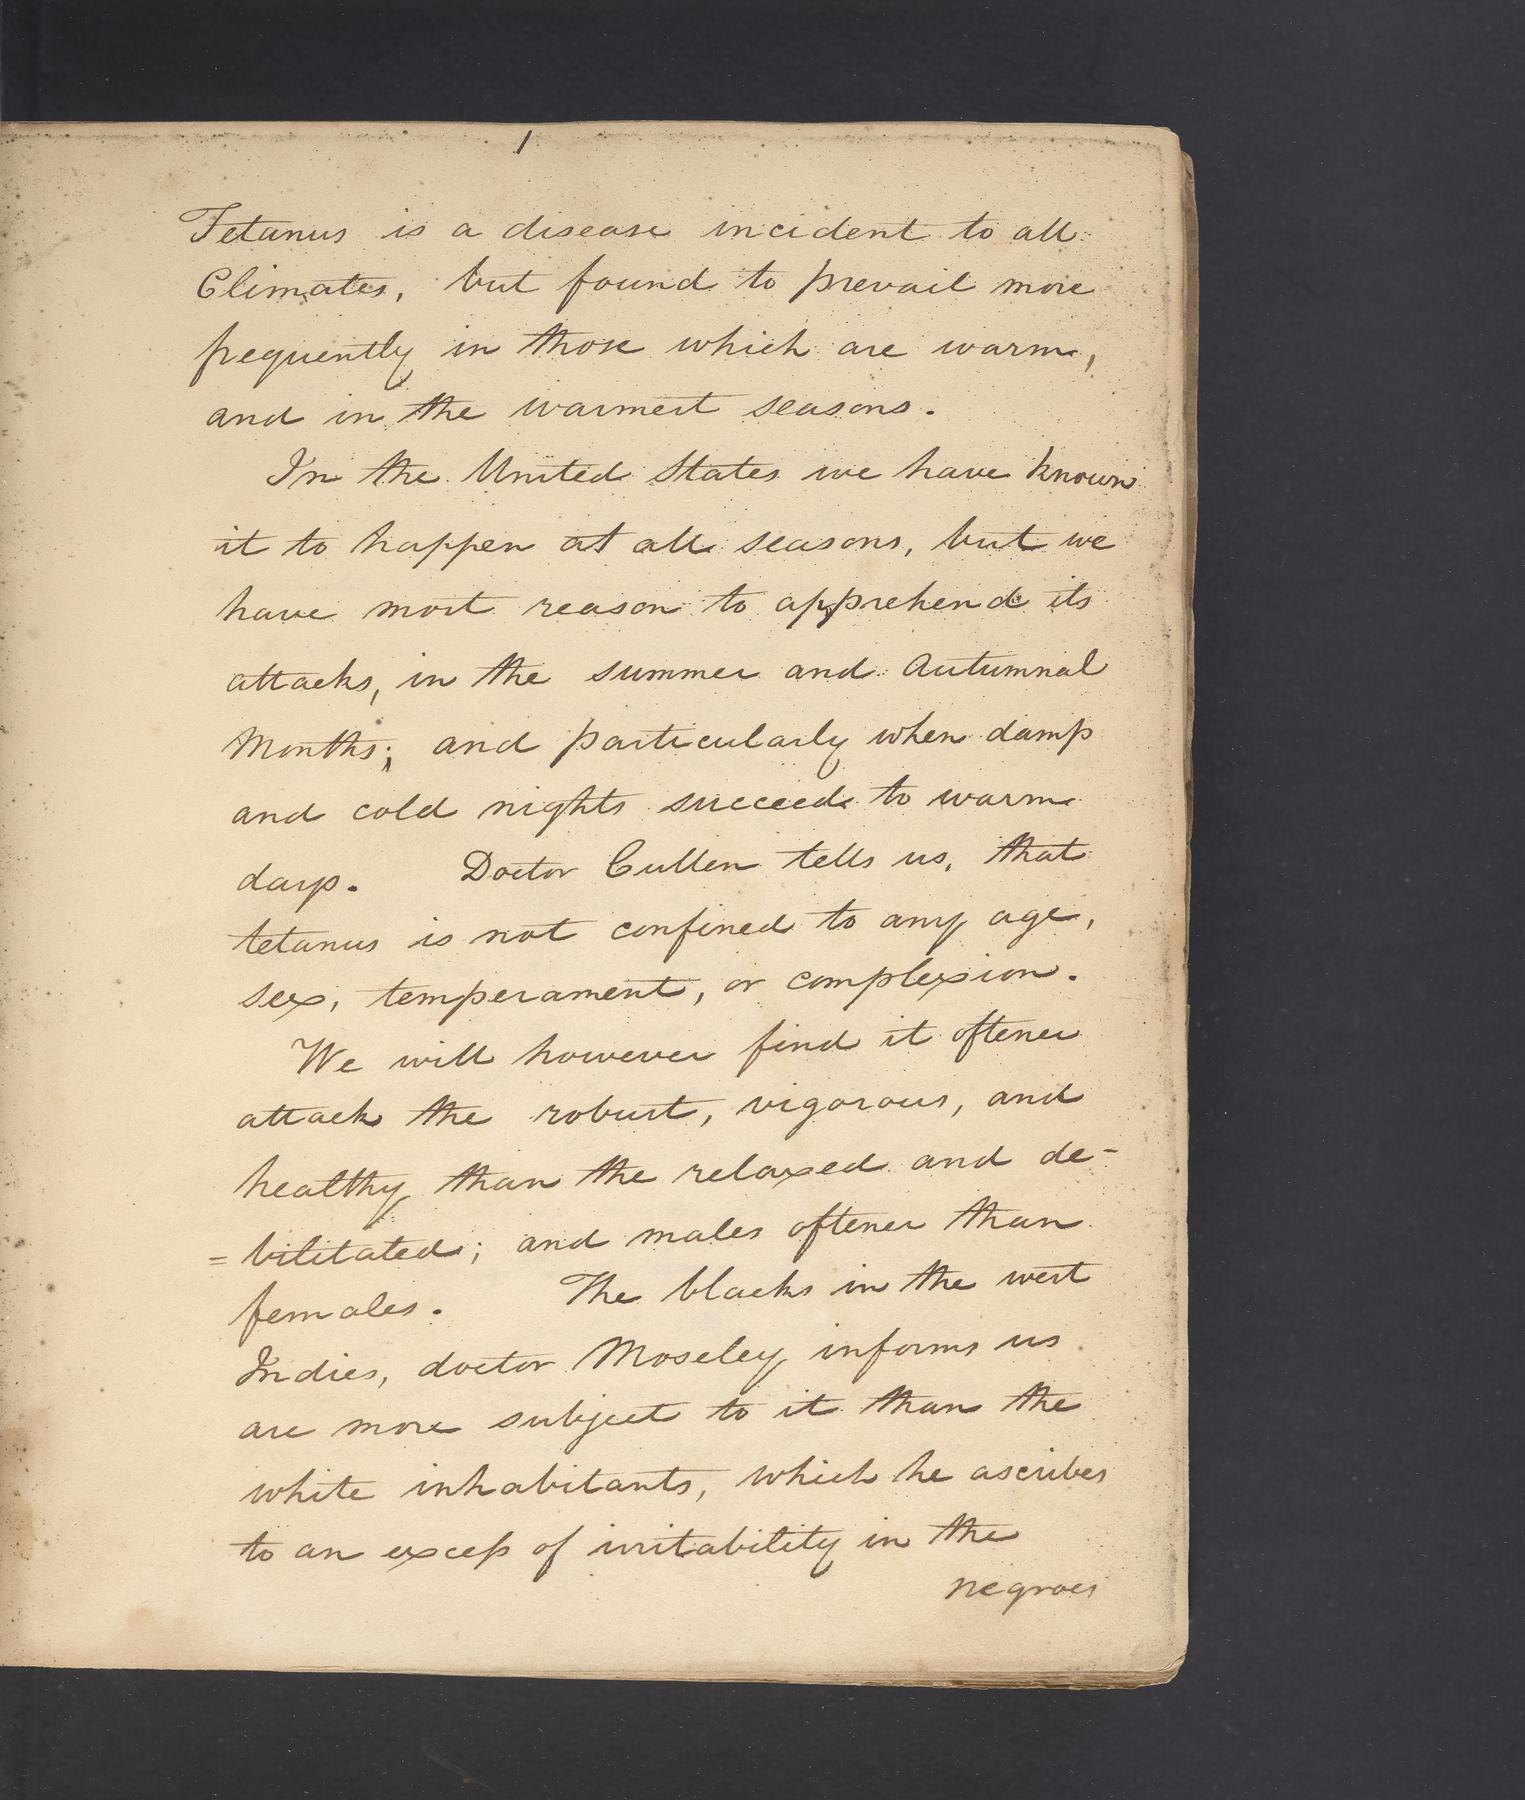 1
Tetanus is a disease incident to all
Climates, but found to prevail more
frequently in those which are warm,
and in the warmest seasons.
In the United States we have known
it to happen at all seasons, but we
have most reason to apprehend its
attacks, in the summer and Autumnal
Months; and particularly when damp
and cold nights succeed to warm
days. Doctor Cullen tells us, that
tetanus is not confined to any age,
sex, temperament, or complexion.
We will however find it oftener
attack the robust, vigorous, and
healthy than the relaxed and de-
=bilitated; and males oftener than
females. The blacks in the west
Indies, doctor Moseley informs us
are more subject to it than the
white inhabitants, which he ascribes
to an excess of irritability in the
negroes